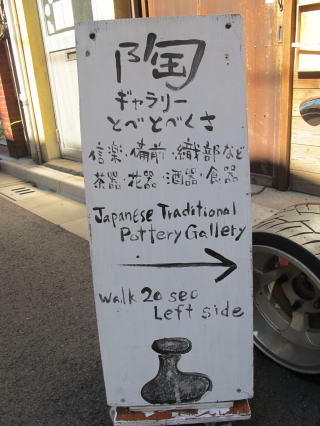 陶
ギャラリー
とべとべくさ
信楽・備前・織部など
茶器・花器・酒器・食器
Japanese Traditional
Pottery Gallery
walk 20 sec
Left side